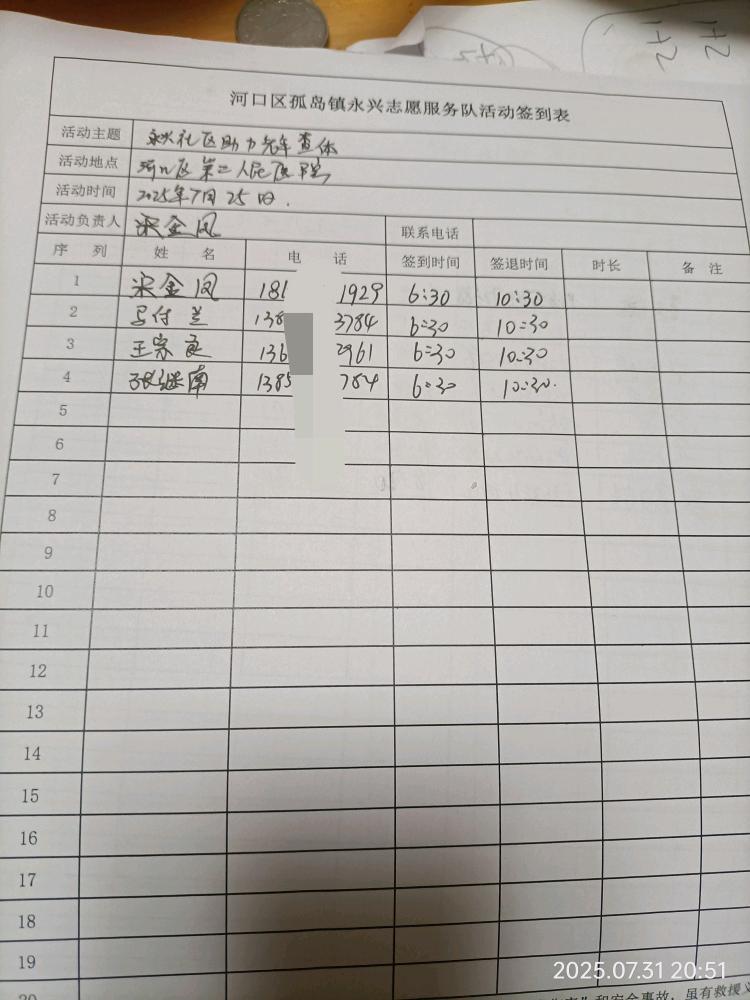 河口区孤岛镇永兴志愿服务队活动签到表
活动主题 永兴社区助力老年查体
活动地点 河口区第二人民医院
活动时间 2025年7月25日.
活动负责人 宋金凤 联系电话
序 列 姓 名 电 话 签到时间 签退时间 时长 备 注
1 宋金凤 181 1929 6:30 10:30
2 马付兰 138 3784 6:30 10:30
3 王宗良 136 2961 6:30 10:30
4 张继南 1385 784 6:30 10:30.
5
6
7
8
9
10
11
12
13
14
15
16
17
18
19
20
和安全事故,虽有救援
2025.07.31 20:51
172
172